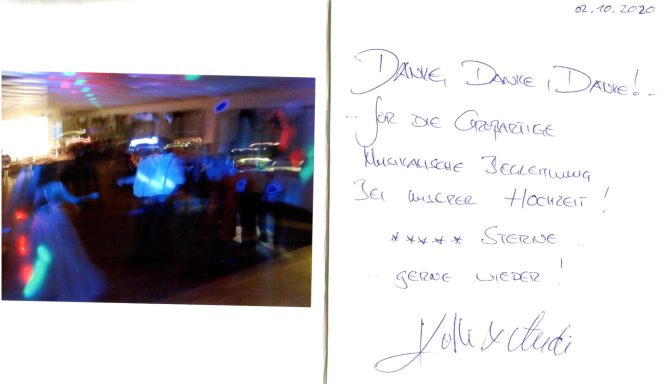 02.10.2020
DANKE, DANKE, DANKE!...
... FÜR DIE GROßARTIGE
MUSIKALISCHE BEGLEITUNG
BEI UNSERER HOCHZEIT!
***** STERNE ..
.. GERNE WIEDER!